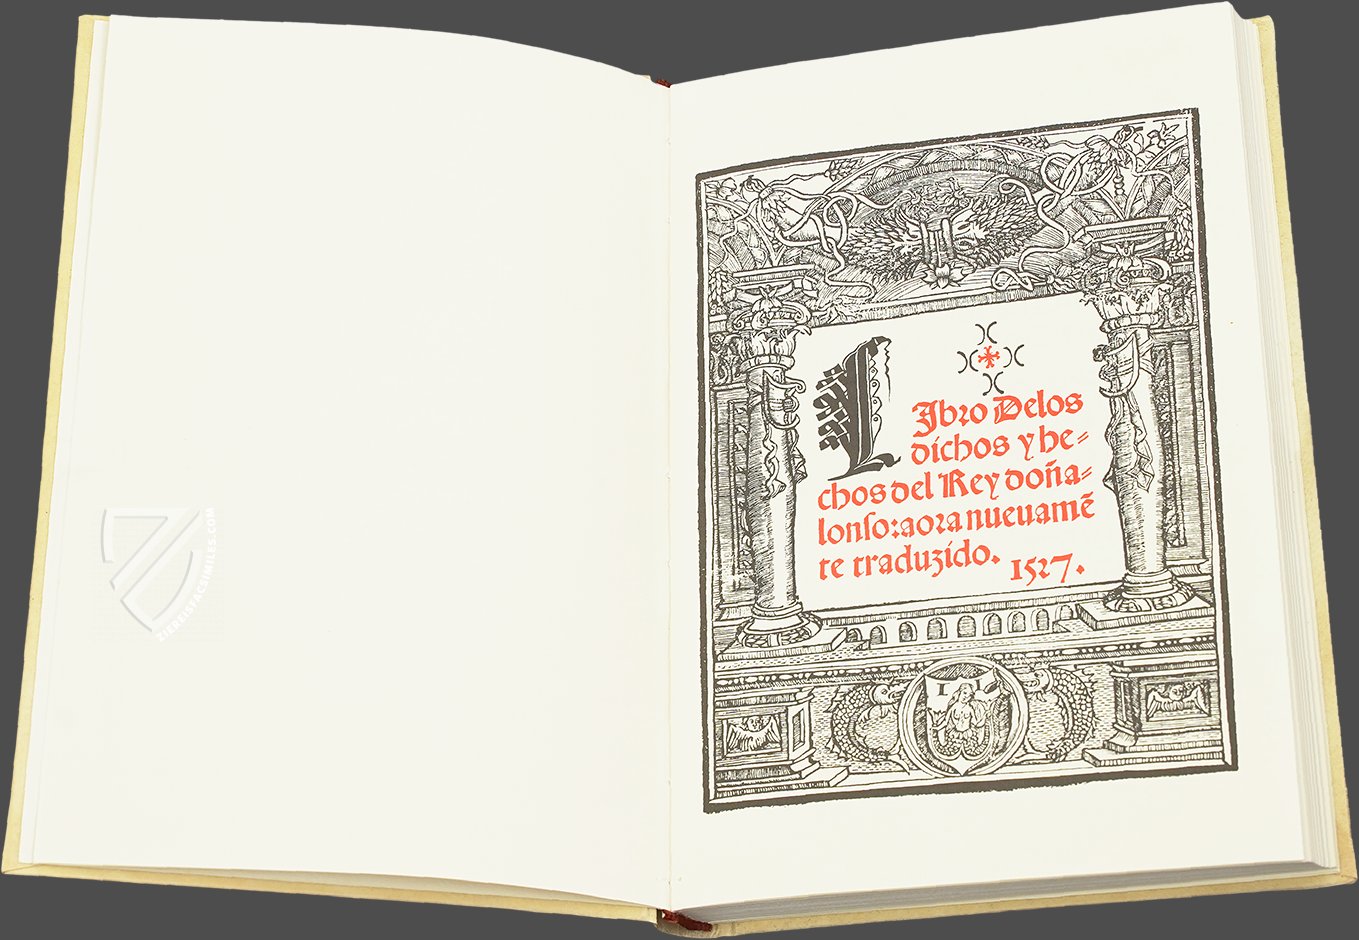 LJbro Delos
dichos y he=
chos del Rey doña=
lonso:aora nueuamẽ
te traduzido. 1527.
I L
ZIEREIS FACSIMILES.COM